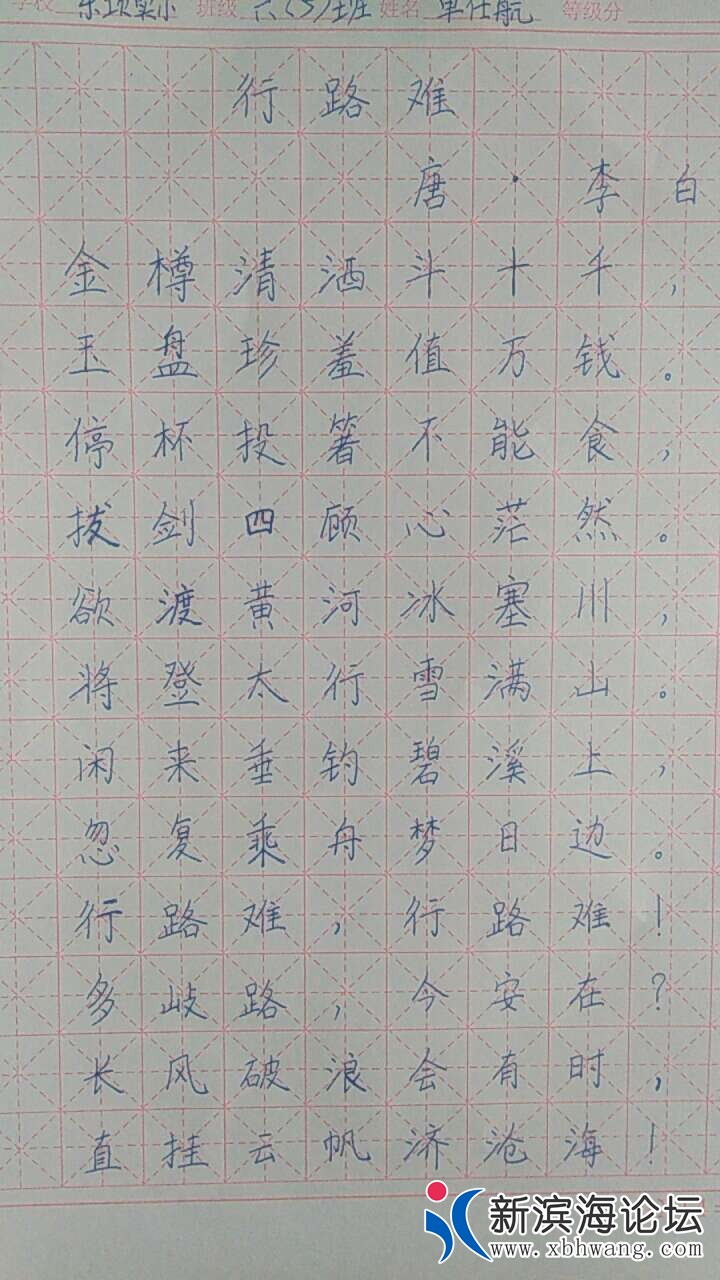 学校 东坎实小 班级 六(5)班 姓名 单仕航 等级分
行路难
唐·李白
金樽清洒斗十千，
玉盘珍羞值万钱。
停杯投箸不能食，
拔剑四顾心茫然。
欲渡黄河冰塞川，
将登太行雪满山。
闲来垂钓碧溪上，
忽复乘舟梦日边。
行路难，行路难！
多歧路，今安在？
长风破浪会有时，
直挂云帆济沧海！
新滨海论坛
www.xbhwang.com